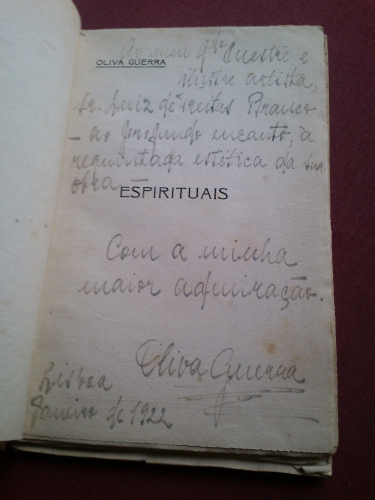 Ao meu qdo Mestre e
OLIVA GUERRA
ilustre artista,
Sr. Luiz de Freitas Branco
– ao profundo encanto, à
requintada estética da sua
obra –
ESPIRITUAIS
Com a minha
maior admiração.
Oliva Guerra
Lisboa
Janeiro de 1922